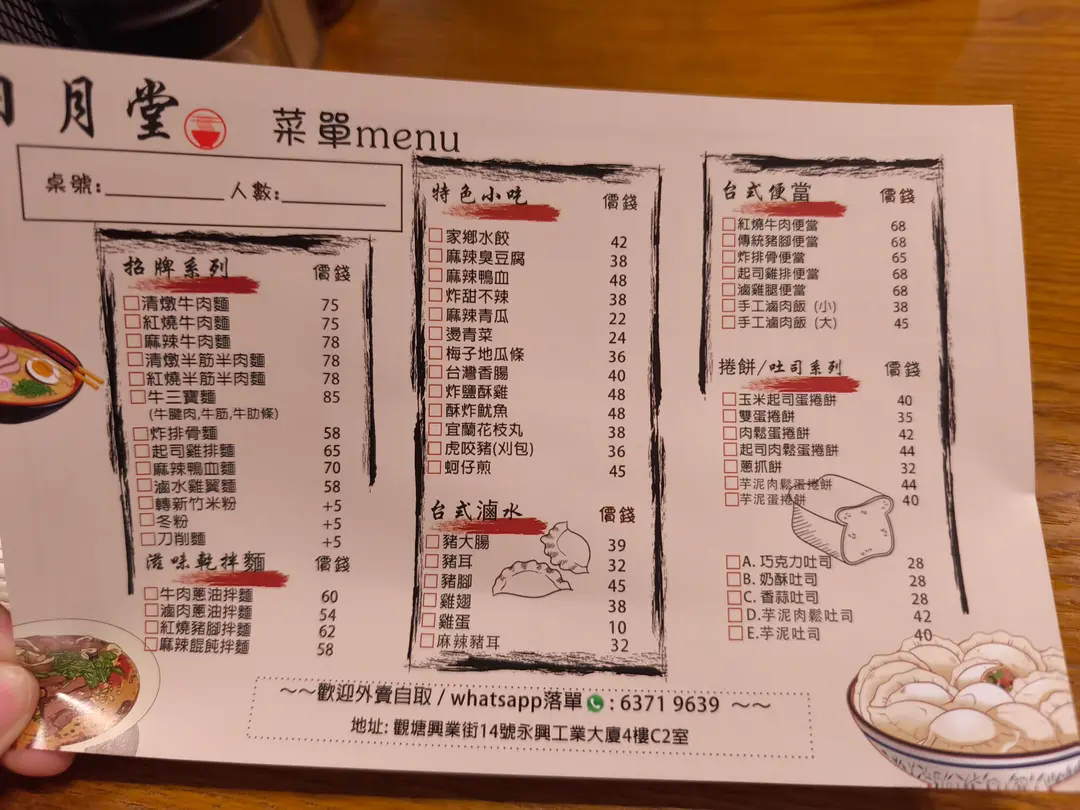 月堂
菜單menu
桌號: 人數:
招牌系列 價錢
清燉牛肉麵 75
紅燒牛肉麵 75
麻辣牛肉麵 78
清燉半筋半肉麵 78
紅燒半筋半肉麵 78
牛三寶麵 85
(牛腱肉,牛筋,牛肋條)
炸排骨麵 58
起司雞排麵 65
麻辣鴨血麵 70
滷水雞翼麵 58
轉新竹米粉 +5
冬粉 +5
刀削麵 +5
滋味乾拌麵 價錢
牛肉蔥油拌麵 60
滷肉蔥油拌麵 54
紅燒豬腳拌麵 62
麻辣餛飩拌麵 58
特色小吃 價錢
家鄉水餃 42
麻辣臭豆腐 38
麻辣鴨血 48
炸甜不辣 38
麻辣青瓜 22
燙青菜 24
梅子地瓜條 36
台灣香腸 40
炸鹽酥雞 48
酥炸魷魚 48
宜蘭花枝丸 38
虎咬豬(刈包) 36
蚵仔煎 45
台式滷水 價錢
豬大腸 39
豬耳 32
豬腳 45
雞翅 38
雞蛋 10
麻辣豬耳 32
台式便當 價錢
紅燒牛肉便當 68
傳統豬腳便當 68
炸排骨便當 65
起司雞排便當 68
滷雞腿便當 68
手工滷肉飯 (小) 38
手工滷肉飯 (大) 45
捲餅/吐司系列 價錢
玉米起司蛋捲餅 40
雙蛋捲餅 35
肉鬆蛋捲餅 42
起司肉鬆蛋捲餅 44
蔥抓餅 32
芋泥肉鬆蛋捲餅 44
芋泥蛋捲餅 40
A. 巧克力吐司 28
B. 奶酥吐司 28
C. 香蒜吐司 28
D.芋泥肉鬆吐司 42
E.芋泥吐司 40
~~歡迎外賣自取 / whatsapp落單 : 6371 9639 ~~
地址: 觀塘興業街14號永興工業大廈4樓C2室